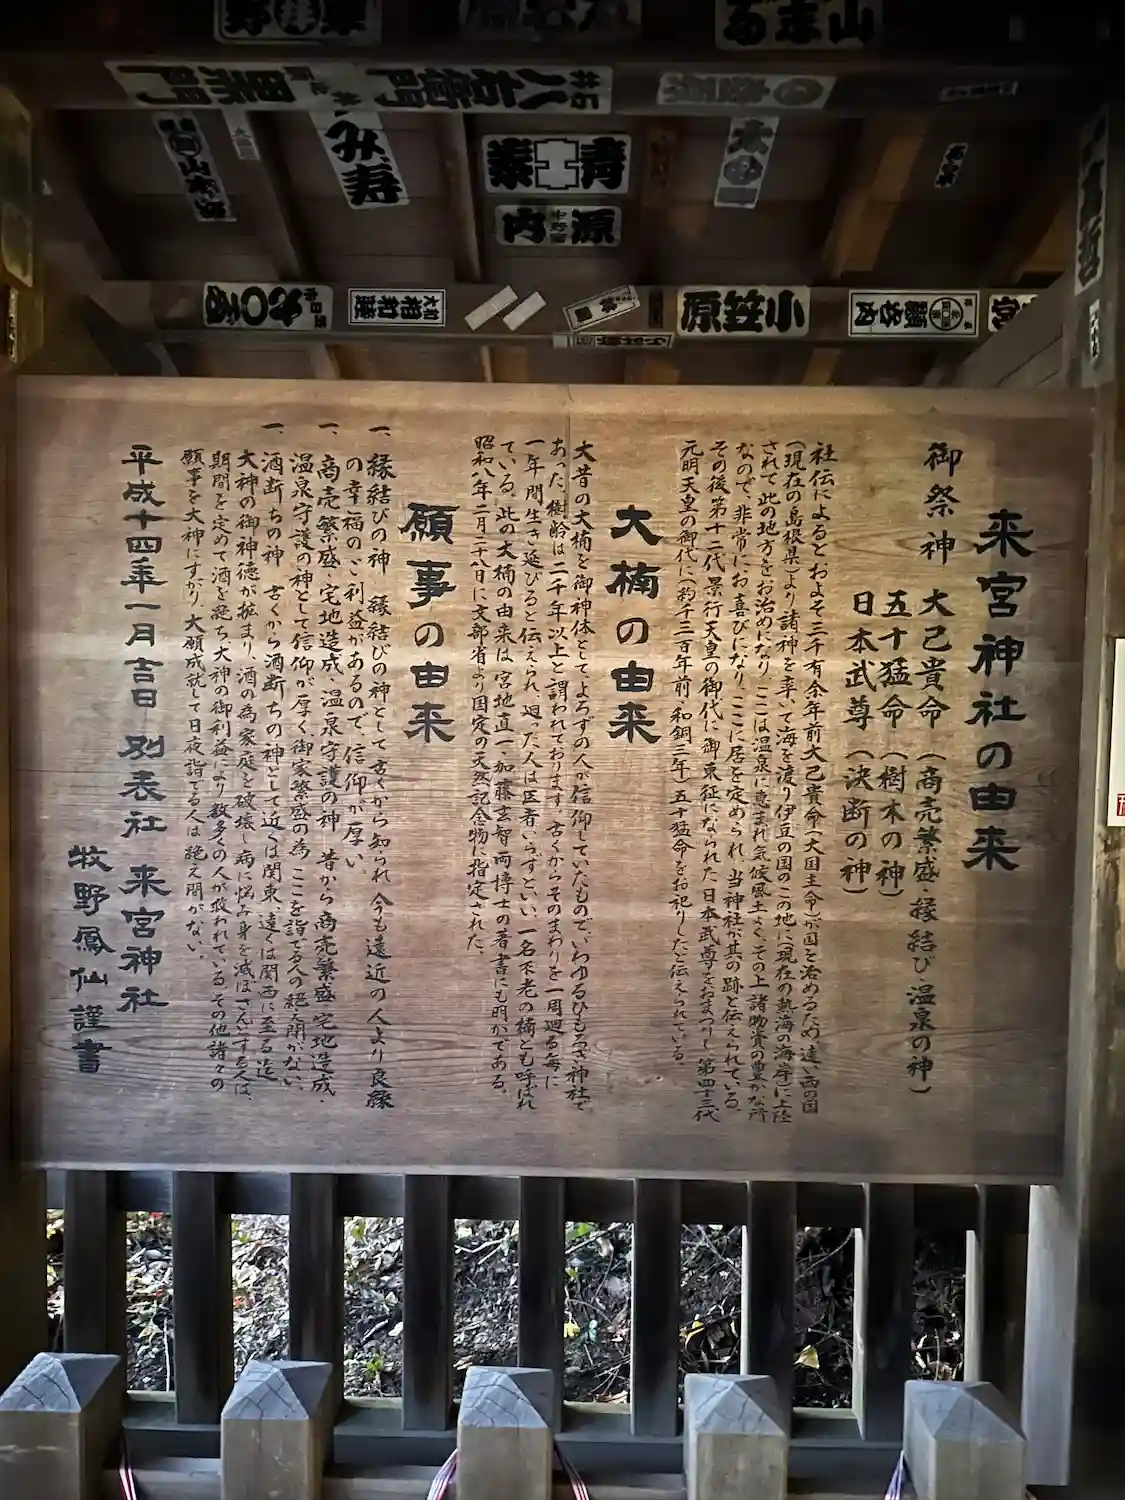 来宮神社の由来
御祭神 大己貴命(商売繁盛・縁結び・温泉の神)
五十猛命(樹木の神)
日本武尊(決断の神)
社伝によるとおよそ三千有余年前大己貴命(大国主命)が国を治めるため、遠い西の国
(現在の島根県)より諸神を率いて海を渡り伊豆の国のこの地に(現在の熱海の海岸)に上陸
されて此の地方をお治めになり、ここは温泉に恵まれ気候風土よく、その上諸物資の豊かな所
なので、非常にお喜びになり、ここに居を定められ、当神社が其の跡と伝えられている。
その後第十二代景行天皇の御代に御東征になられた日本武尊をおまつりし第四十三代
元明天皇の御代に(約千三百年前・和銅三年)五十猛命をお祀りしたと伝えられている。
大楠の由来
大昔の大楠を御神体として、よろずの人が信仰していたもので、いわゆるひもろぎ神社で
あった。樹齢は二千年以上と謂われております。古くからそのまわりを一周廻る毎に
一年間生き延びると伝えられ、廻った人は医者いらずといい、一名不老の楠とも呼ばれ
ている。此の大楠の由来は宮地直一、加藤玄智両博士の著書にも明かである。
昭和八年二月二十八日に文部省より国定の天然記念物に指定された。
願事の由来
一、縁結びの神 縁結びの神として古くから知られ、今も遠近の人より良縁
の幸福のご利益があるので、信仰が厚い。
一、商売繁盛・宅地造成、温泉守護の神 昔から商売繁盛・宅地造成・
温泉守護の神として信仰が厚く御家繁盛の為、ここを詣でる人の絶え間がない。
一、酒断ちの神 古くから酒断ちの神として近くは関東、遠くは関西に至る迄
大神の御神徳が拡まり、酒の為家庭を破壊し病に悩み身を滅ぼさんとする人は、
期間を定めて酒を絶ち大神の御利益により数多くの人が救われている。その他諸々の
願事を大神にすがり、大願成就して日夜詣でる人は絶え間がない。
平成十四年一月吉日 別表社 来宮神社
牧野鳳仙 謹書
青木
源内
小笠原